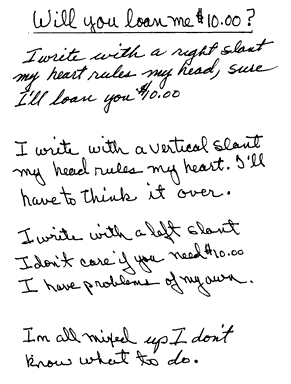 Will you loan me $10.00?
I write with a right slant
my heart rules my head, sure
I'll loan you $10.00
I write with a vertical slant
my head rules my heart. I'll
have to think it over.
I write with a left slant
I don't care if you need $10.00
I have problems of my own.
Im all mixed up I don't
know what to do.